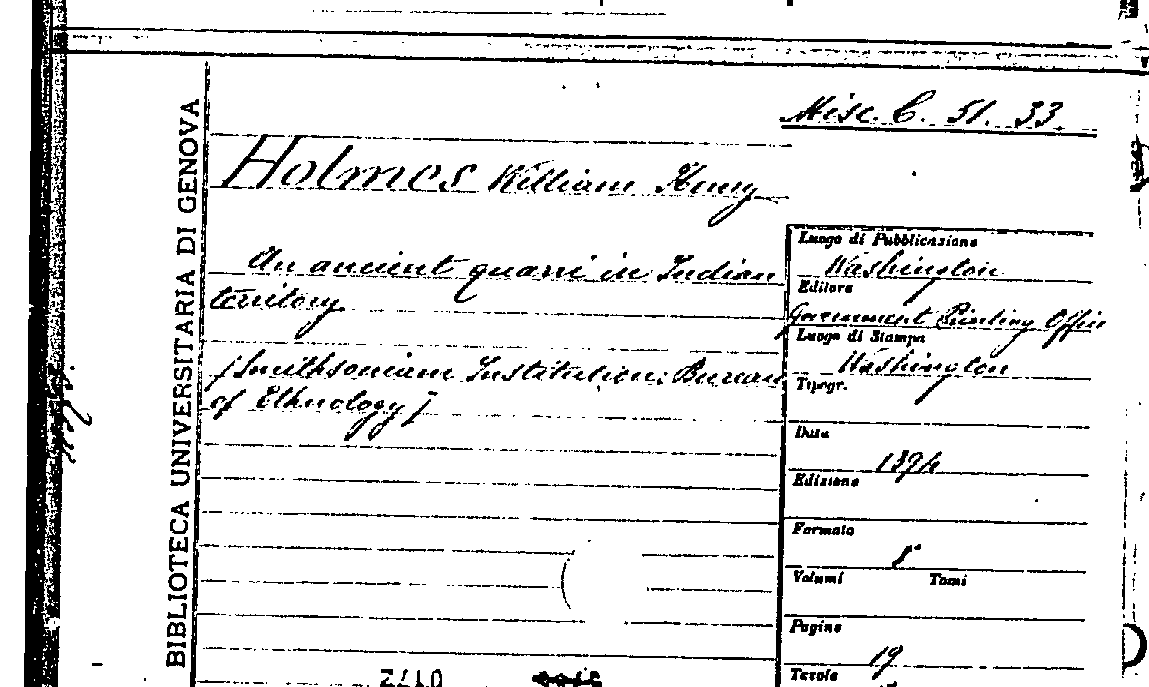 BIBLIOTECA UNIVERSITARIA DI GENOVA
Misc. C. 51. 33.
Holmes William Henry
An ancient quarri in Indian
territory
[Smithsonian Institution: Bureau
of Ethnology]
Luogo di Pubblicazione
Washington
Editore
Government Printing Office
Luogo di Stampa
Washington
Tipogr.
Data
1894
Edizione
Formato
8°
Volumi Tomi
Pagine
19
Tavole